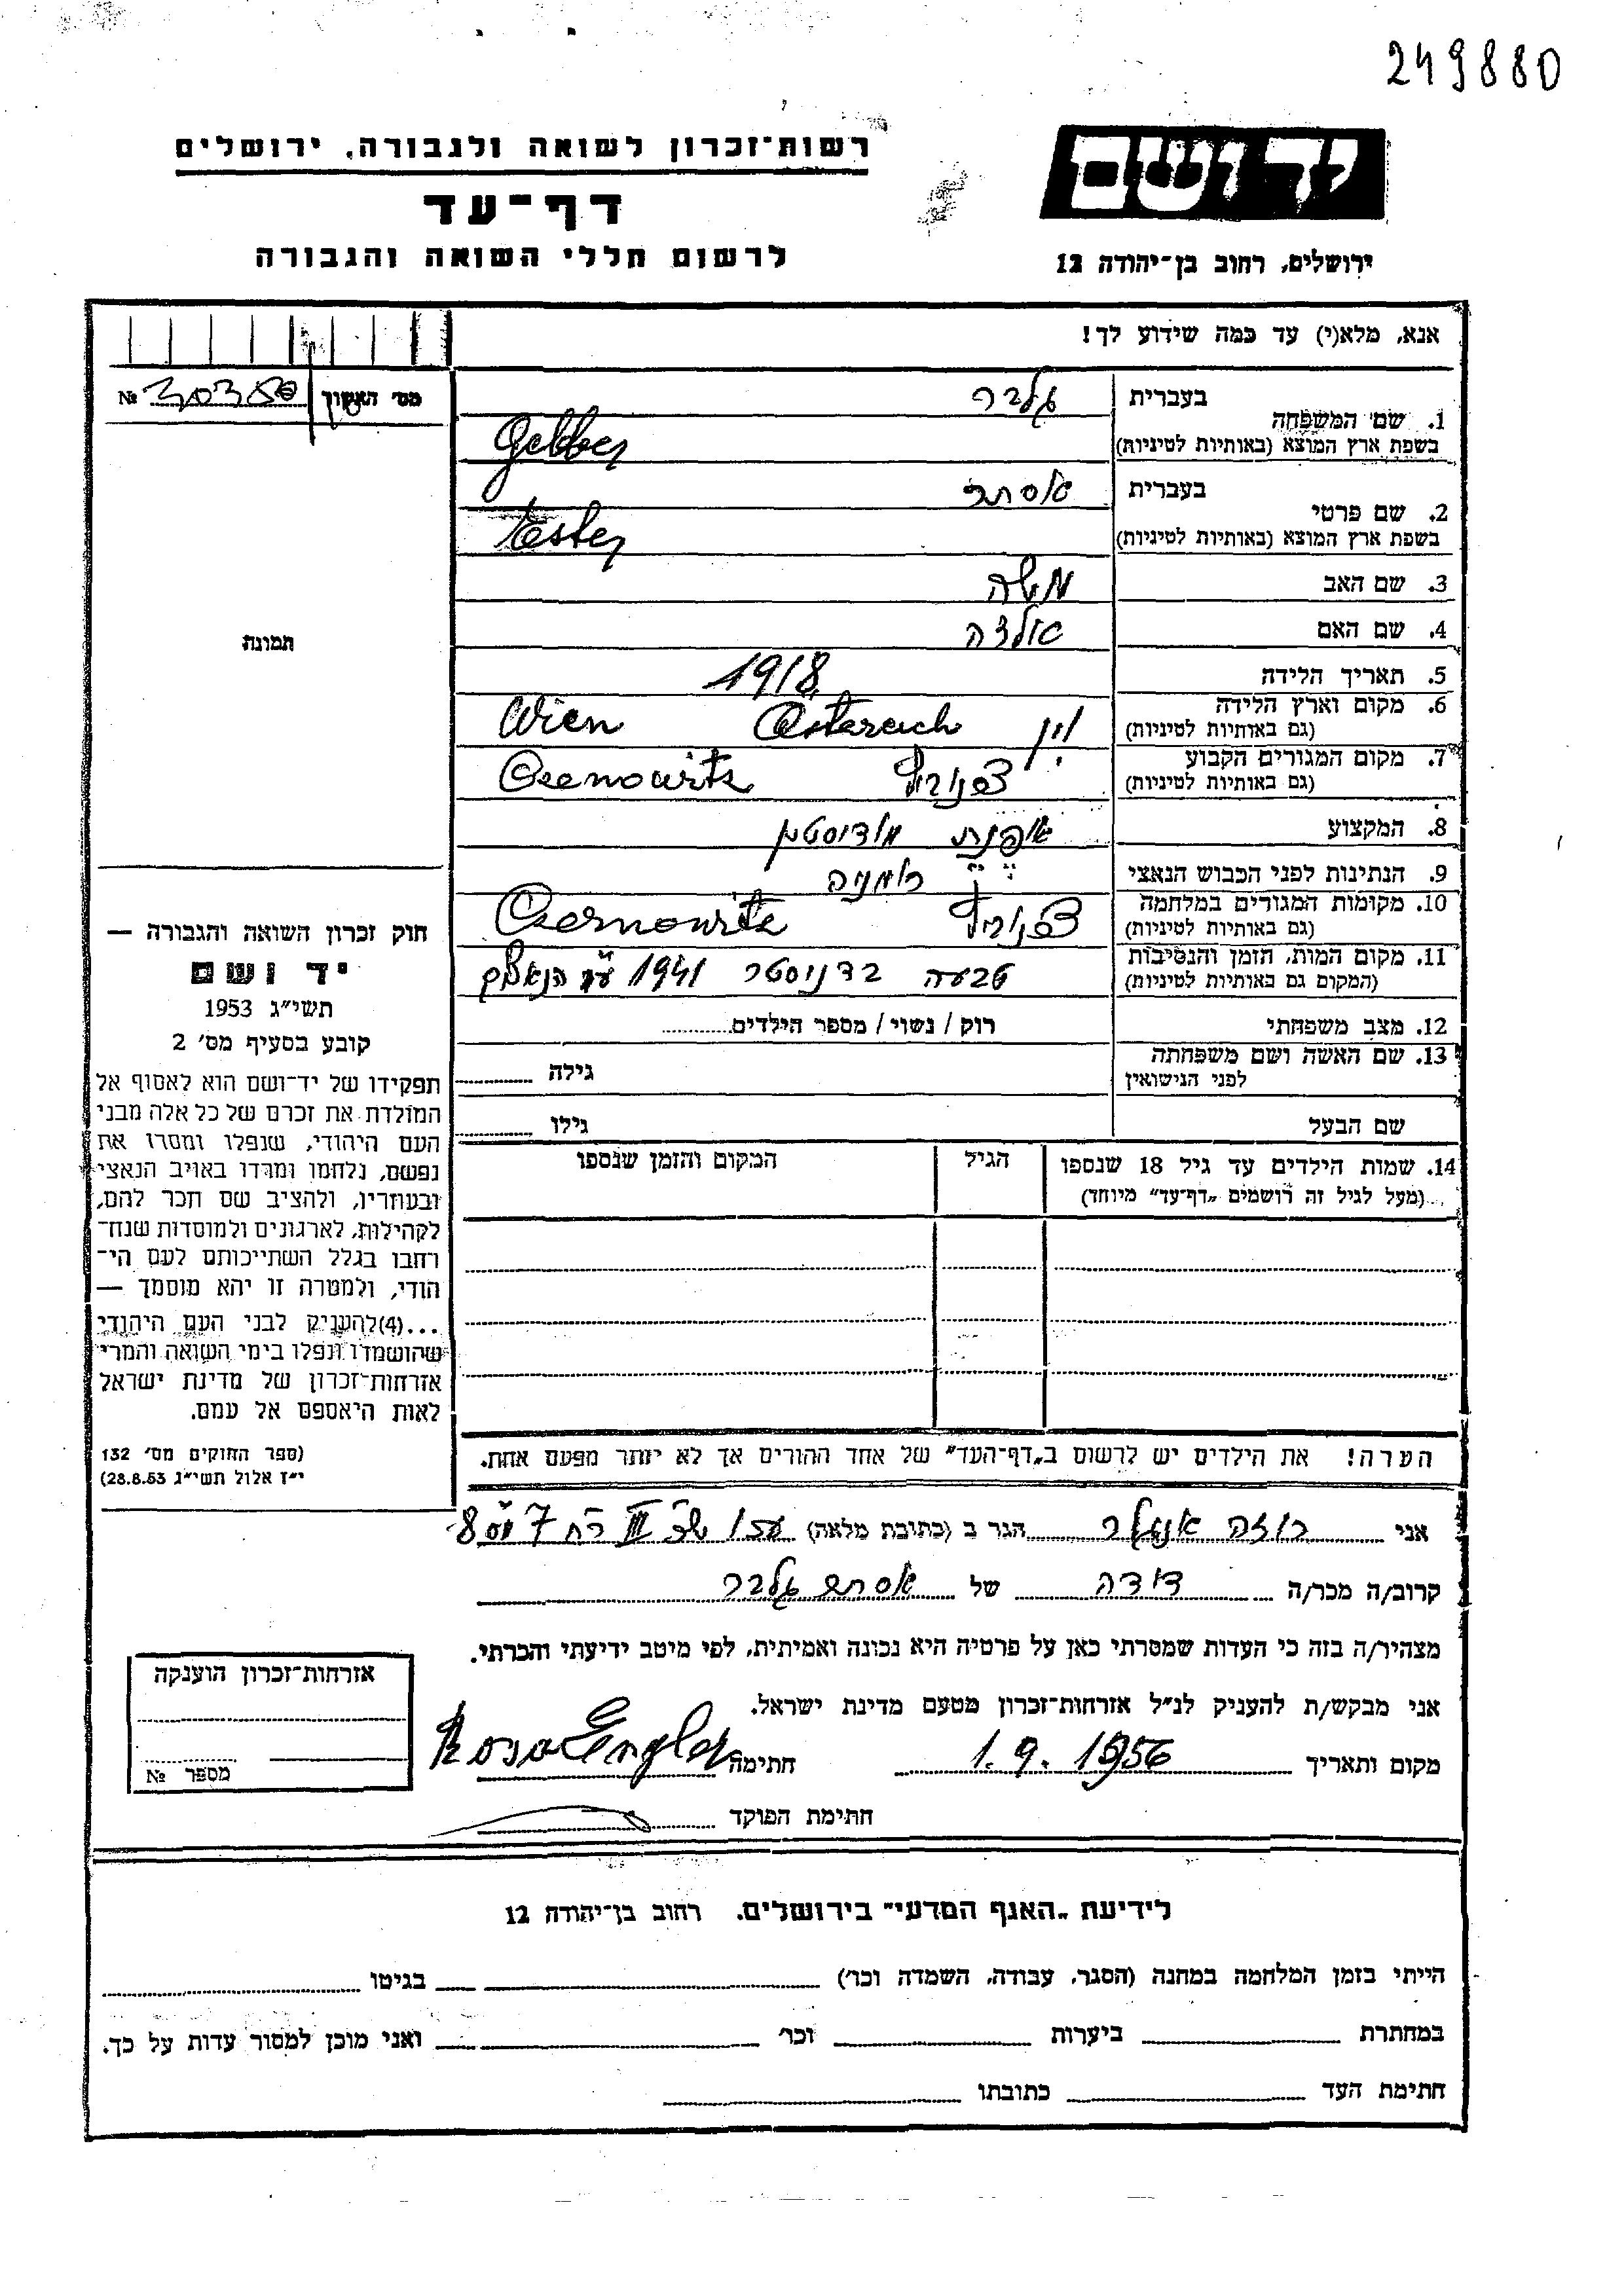 249880
רשות־זכרון לשואה ולגבורה, ירושלים
יד ושם
דף־עד
לרשום חללי השואה והגבורה
ירושלים, רחוב בן־יהודה 12
אנא, מלא(י) עד כמה שידוע לך!
מס׳ האשוך №
1. שם המשפחה בעברית גלבר
בשפת ארץ המוצא (באותיות לטיניות) Gelber
2. שם פרטי בעברית אסתר
בשפת ארץ המוצא (באותיות לטיניות) Ester
3. שם האב משה
4. שם האם
תמונה
5. תאריך הלידה 1918
6. מקום וארץ הלידה (גם באותיות לטיניות) וין Östereich Wien
7. מקום המגורים הקבוע (גם באותיות לטיניות) Csernowitz
8. המקצוע
9. הנתינות לפני הכבוש הנאצי רומניה
10. מקומות המגורים במלחמה (גם באותיות לטיניות) Csernowitz
11. מקום המות, הזמן והנסיבות (המקום גם באותיות לטיניות) טבעה בדניסטר 1941 ע"י הנאצים
12. מצב משפחתי רוק / נשוי / מספר הילדים
13. שם האשה ושם משפחתה לפני הנישואין גילה
שם הבעל גילו
14. שמות הילדים עד גיל 18 שנספו הגיל המקום והזמן שנספו
(מעל לגיל זה רושמים „דף־עד״ מיוחד)
חוק זכרון השואה והגבורה —
יד ושם
תשי״ג 1953
קובע בסעיף מס׳ 2
תפקידו של יד־ושם הוא לאסוף אל
המולדת את זכרם של כל אלה מבני
העם היהודי, שנפלו ומסרו את
נפשם, נלחמו ומרדו באויב הנאצי
ובעוזריו, ולהציב שם וזכר להם,
לקהילות, לארגונים ולמוסדות שנח־
רבו בגלל השתייכותם לעם הי־
הודי, ולמטרה זו יהא מוסמך —
...(4)להעניק לבני העם היהודי
שהושמדו ונפלו בימי השואה והמרי
אזרחות־זכרון של מדינת ישראל
לאות היאספם אל עמם.
(ספר החוקים מס׳ 132
י״ז אלול תשי״ג 28.8.53)
הערה! את הילדים יש לרשום ב„דף־העד״ של אחד ההורים אך לא יותר מפעם אחת.
אני רוזה אנגלר הגר ב (כתובת מלאה)
קרוב/ה מכר/ה דודה של אסתר גלבר
מצהיר/ה בזה כי העדות שמסרתי כאן על פרטיה היא נכונה ואמיתית, לפי מיטב ידיעתי והכרתי.
אני מבקש/ת להעניק לנ״ל אזרחות־זכרון מטעם מדינת ישראל.
מקום ותאריך 1.9.1956 חתימה Rosa Engler
חתימת הפוקד
אזרחות־זכרון הוענקה
מספר №
לידיעת „האגף המדעי״ בירושלים, רחוב בן־יהודה 12
הייתי בזמן המלחמה במחנה (הסגר, עבודה, השמדה וכו׳) בגיטו
במחתרת ביערות וכו׳ ואני מוכן למסור עדות על כך.
חתימת העד כתובתו